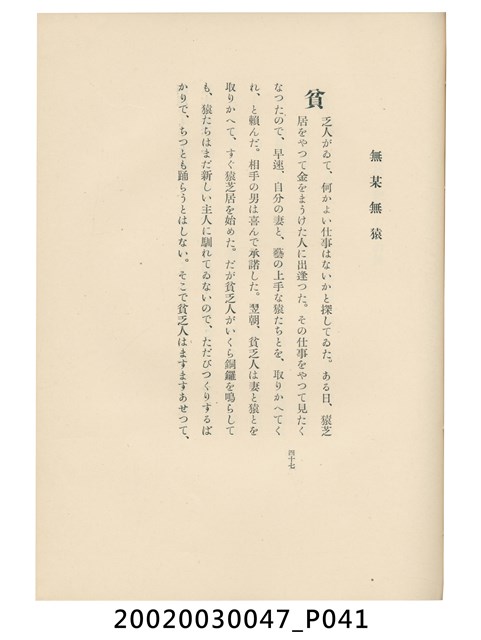 無某無猿
貧乏人がゐて、何かよい仕事はないかと探してゐた。ある日、猿芝
居をやつて金をまうけた人に出逢つた。その仕事をやつて見たく
なつたので、早速、自分の妻と、藝の上手な猿たちとを、取りかへてく
れ、と頼んだ。相手の男は喜んで承諾した。翌朝、貧乏人は妻と猿とを
取りかへて、すぐ猿芝居を始めた。だが貧乏人がいくら銅鑼を鳴らして
も、猿たちはまだ新しい主人に馴れてゐないので、ただびつくりするば
かりで、ちつとも踊らうとはしない。そこで貧乏人はますますあせつて、
四十七
20020030047_P041